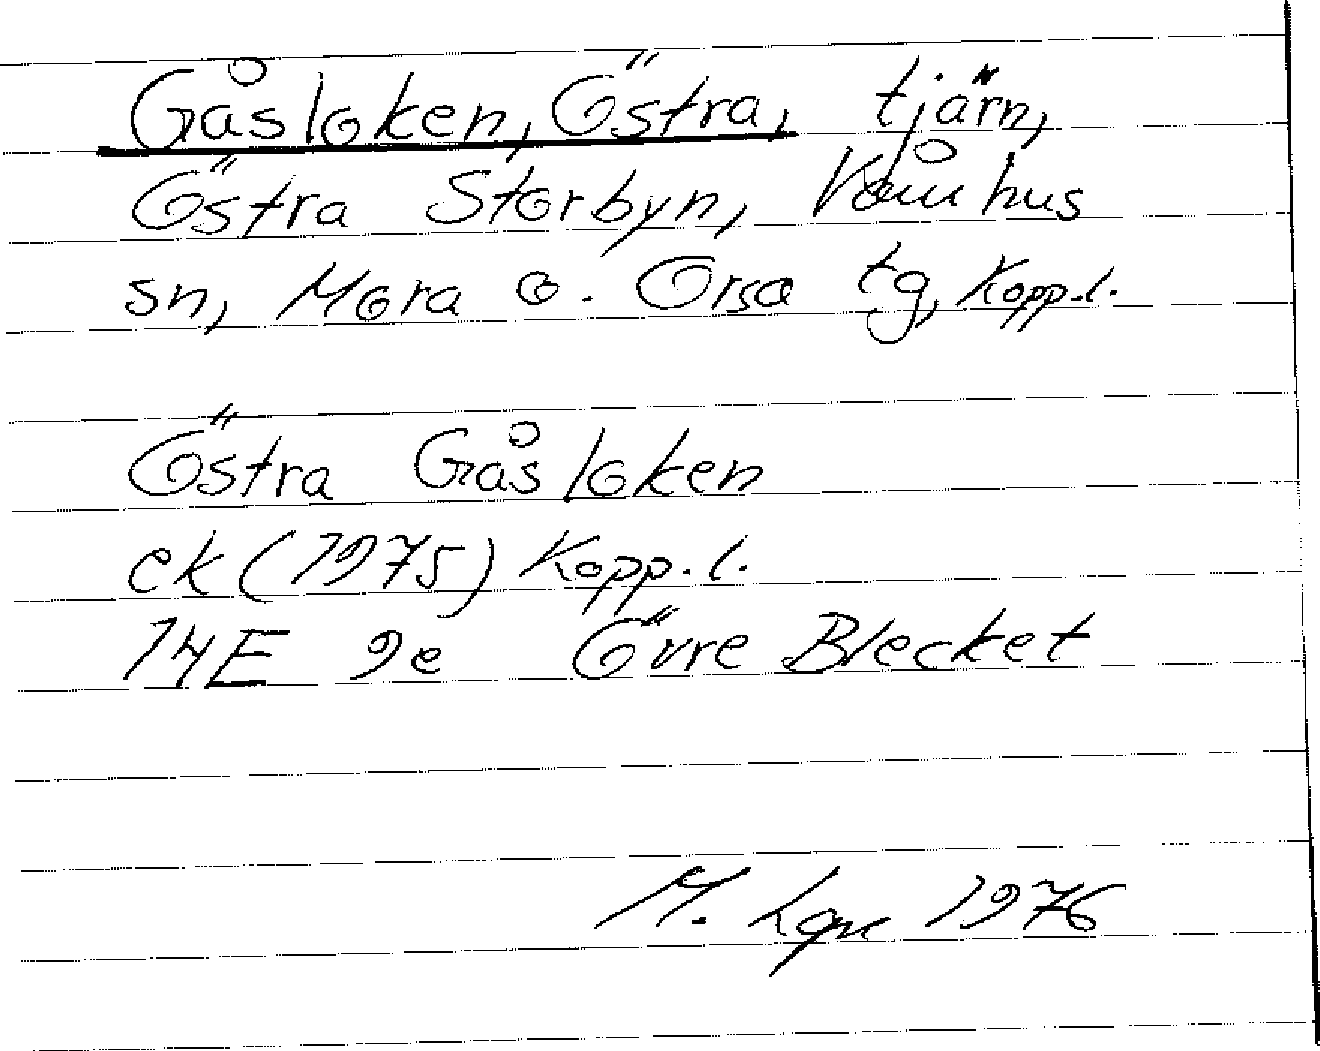 Gåsloken, Östra, tjärn,
Östra Storbyn, Våmhus
sn, Mora o. Orsa tg, Kopp.l.
Östra Gåsloken
ek (1975) Kopp.l.
14E 9e Övre Blecket
M. 1976